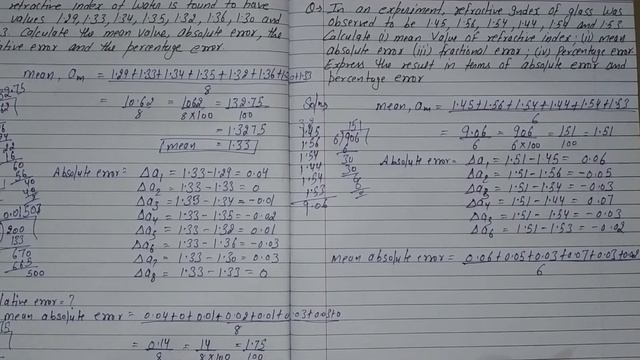 refractive index of water is found to have
values 1.29, 1.33, 1.34, 1.35, 1.32, 1.36, 1.30 and
3. Calculate the mean value, absolute error, the
ative error and the percentage error.
mean, am = 1.29+1.33+1.34+1.35+1.32+1.36+1.30+1.33
8
= 10.62 = 1062 = 132.75
8 8×100 100
= 1.3275
mean = 1.33
Absolute error = Δa1 = 1.33-1.29 = 0.04
Δa2 = 1.33-1.33 = 0
Δa3 = 1.33-1.34 = -0.01
Δa4 = 1.33-1.35 = -0.02
Δa5 = 1.33-1.32 = 0.01
Δa6 = 1.33-1.36 = -0.03
Δa7 = 1.33-1.30 = 0.03
Δa8 = 1.33-1.33 = 0
lative error = ?
mean absolute error = 0.04+0+0.01+0.02+0.01+0.03+0.03+0
8
= 0.14 = 14 = 1.75
8 8×100 100
Q. In an experiment, refractive index of glass was
observed to be 1.45, 1.56, 1.54, 1.44, 1.54 and 1.53
Calculate (i) mean value of refractive index; (ii) mean
absolute error (iii) fractional error; (iv) Percentage error.
Express the result in terms of absolute error and
percentage error
mean, am = 1.45+1.56+1.54+1.44+1.54+1.53
6
= 9.06 = 906 = 151 = 1.51
6 6×100 100
1.45
1.56
1.54
1.44
1.54
1.53
9.06
151
6)906
Absolute error = Δa1 = 1.51-1.45 = 0.06
Δa2 = 1.51-1.56 = -0.05
Δa3 = 1.51-1.54 = -0.03
Δa4 = 1.51-1.44 = 0.07
Δa5 = 1.51-1.54 = -0.03
Δa6 = 1.51-1.53 = -0.02
mean absolute error = 0.06+0.05+0.03+0.07+0.03+0.02
6